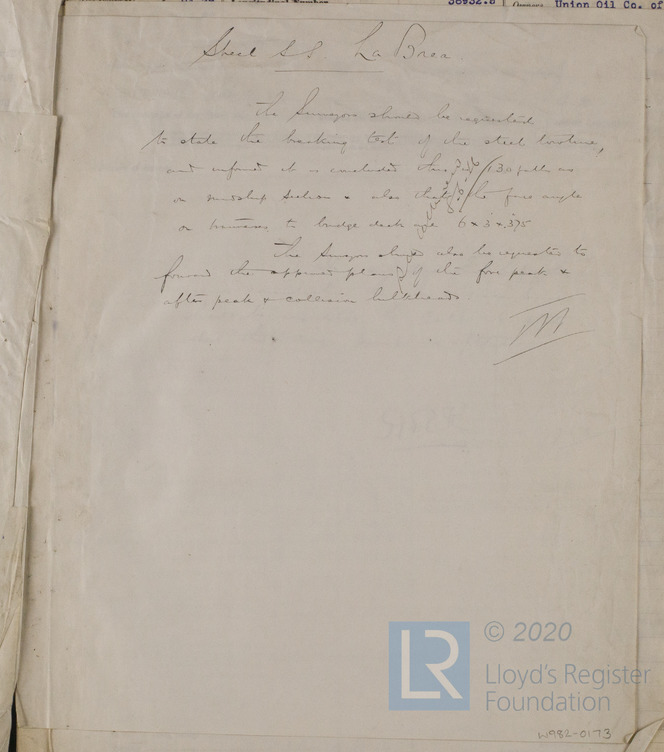 38932.8 Owners Union Oil Co. of
Steel S.S. La Brea
The Surveyors should be requested
to state the breaking test of the steel hawser,
and informed it is concluded there are 130 fathoms
on midship section & also that the face angle
on transverses to bridge deck are 6 x 3 x .375
The Surveyors should also be requested to
forward the approved plans of the fore peak &
after peak & collision bulkheads
© 2020
LR
Lloyd's Register
Foundation
W982-0173